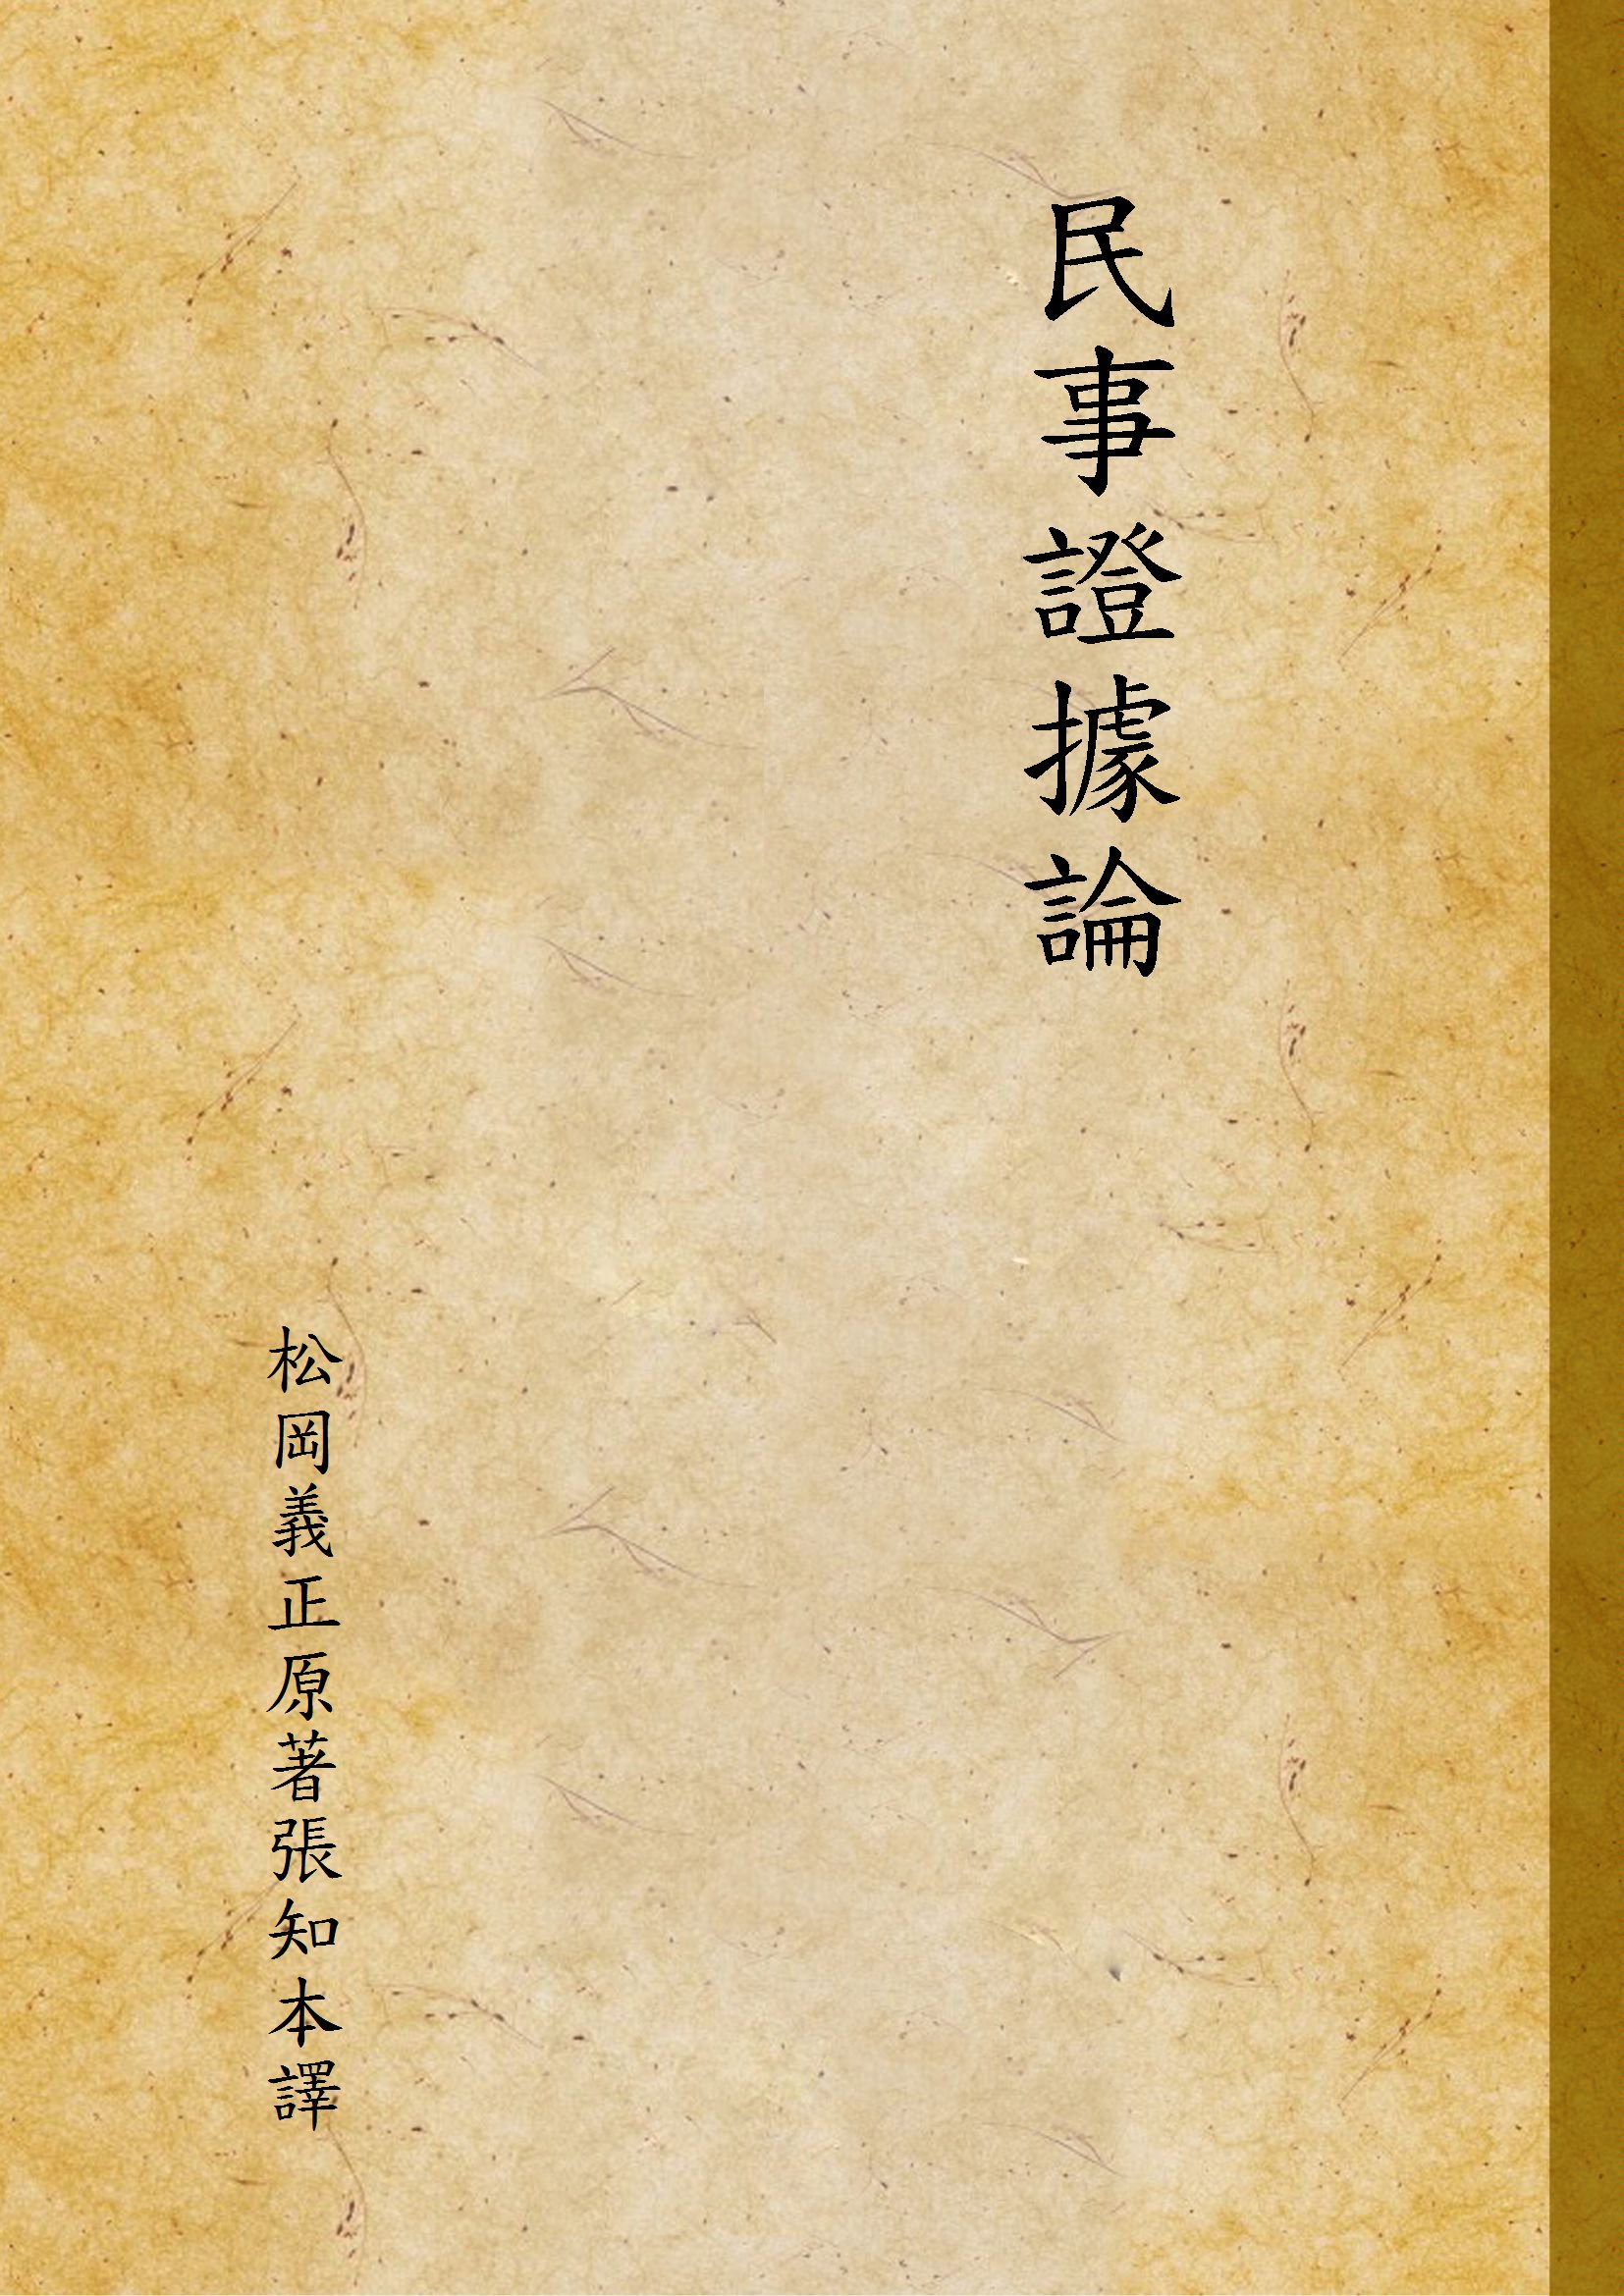 民事證據論
松岡義正原著張知本譯